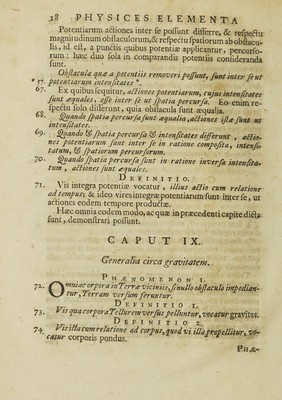 18 PHYSICES ELEMENTA
Potentiarum actiones inter se possunt differre, & respectu
magnitudinum obstaculorum, & respectu spatiorum ab obstacu-
lis, id est, a punctis quibus potentiæ applicantur, percurso-
rum: hæc duo sola in comparandis potentiis consideranda
sunt.
Obstacula quæ a potentiis removeri possunt, sunt inter se ut
potentiarum intensitates *.
* 57.
67. Ex quibus sequitur, actiones potentiarum, cujus intensitates
sunt æquales, esse inter se ut spatia percursa. Eo enim re-
spectu solo differunt, quia obstacula sunt æqualia.
68. Quando spatia percursa sunt æqualia, actiones istæ sunt ut
intensitates.
69. Quando & spatia percursa & intensitates differunt, actio-
nes potentiarum sunt inter se in ratione composita, intensi-
tatum, & spatiorum percursorum.
70. Quando spatia percursa sunt in ratione inversa intensita-
tum, actiones sunt æquales.
DEFINITIO.
71. Vis integra potentiæ vocatur, illius actio cum relatione
ad tempus; & ideo vires integræ potentiarum sunt inter se, ut
actiones eodem tempore productæ.
Hæc omnia eodem modo, ac quæ in præcedenti capite dicta
sunt, demonstrari possunt.
CAPUT IX.
Generalia circa gravitatem.
PHÆNOMENON I.
72. Omnia corpora in Terræ viciniis, si nullo obstaculo impedian-
tur, Terram versum feruntur.
DEFINITIO 1.
73. Vis qua corpora Tellurem versus pelluntur, vocatur gravitas.
DEFINITIO 2.
74. Vis illa cum relatione ad corpus, quod vi illa propellitur, vo-
catur corporis pondus.
PHÆ-